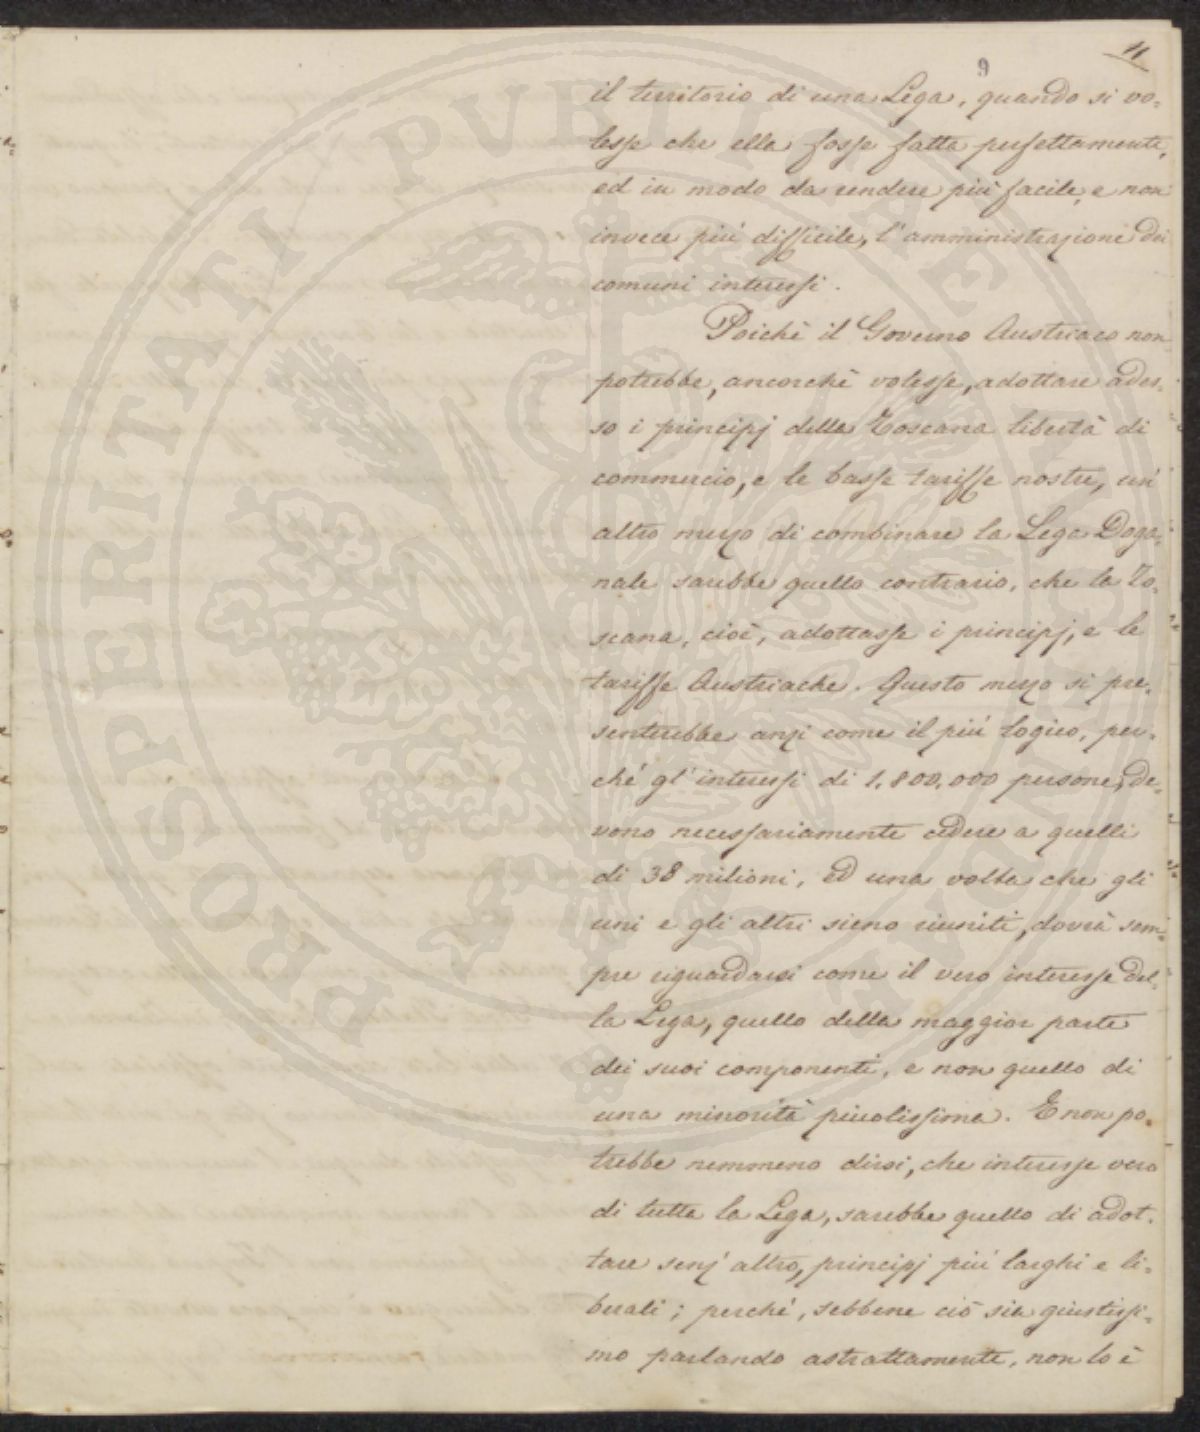 11
9
il territorio di una Lega, quando si vo=
lesse che ella fosse fatta perfettamente,
ed in modo da rendere più facile, e non
invece più difficile, l'amministrazione dei
comuni interessi.
Poichè il Governo Austriaco non
potrebbe, ancorchè volesse, adottare ades=
so i principj della Toscana libertà di
commercio, e le basse tariffe nostre, un'
altro mezzo di combinare la Lega Doga=
nale sarebbe quello contrario, che la To=
scana, cioè, adottasse i principj, e le
tariffe Austriache. Questo mezzo si pre=
senterebbe anzi come il più logico, per=
chè gl'interessi di 1,800,000 persone, de=
vono necessariamente cedere a quelli
di 38 milioni, ed una volta che gli
uni e gli altri sieno riuniti, dovrà sem=
pre riguardarsi come il vero interesse del=
la Lega, quello della maggior parte
dei suoi componenti, e non quello di
una minorità piccolissima. E non po=
trebbe nemmeno dirsi, che interesse vero
di tutta la Lega, sarebbe quello di adot=
tare senz'altro, principj più larghi e li=
berali; perchè, sebbene ciò sia giustissi=
mo parlando astrattamente, non lo è
PROSPERITATI PUBLICAE AUGENDAE